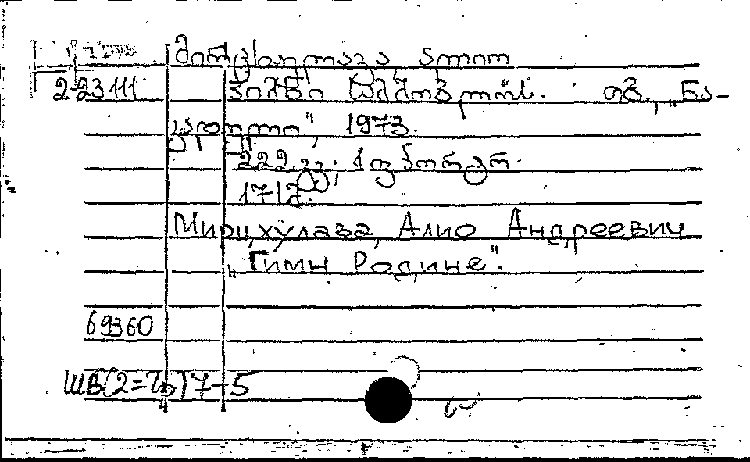 მირცხულავა, ალიო
2-23111 ჰიმნი სამშობლოს. თბ., „ნა-
კადული", 1973.
222 გვ; 1 ფ. პორტრ.
Мирцхулава, Алио Андреевич
„Гимн Родине".
69360
ШБ(2=Гр)7-5